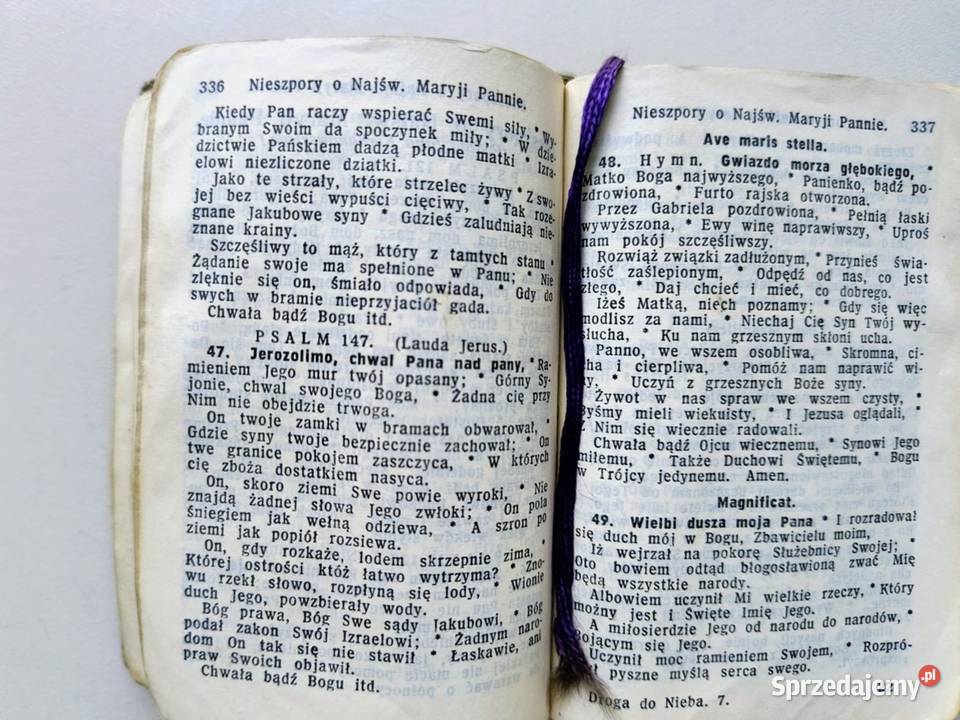 336 Nieszpory o Najśw. Maryji Pannie.
Kiedy Pan raczy wspierać Swemi siły, * Wy-
branym Swoim da spoczynek miły; * W dzie-
dzictwie Pańskiem dadzą płodne matki * Izra-
elowi niezliczone dziatki.
Jako te strzały, które strzelec żywy * Z swo-
jej bez wieści wypuści cięciwy, * Tak roze-
gnane Jakubowe syny * Gdzieś zaludniają nie-
znane krainy.
Szczęśliwy to mąż, który z tamtych stanu *
Żądanie swoje ma spełnione w Panu; * Nie
zlęknie się on, śmiało odpowiada, * Gdy do
swych w bramie nieprzyjaciół gada.
Chwała bądź Bogu itd.
PSALM 147. (Lauda Jerus.)
47. Jerozolimo, chwal Pana nad pany, * Ra-
mieniem Jego mur twój opasany; * Górny Sy-
jonie, chwal swojego Boga, * Żadna cię przy
Nim nie obejdzie trwoga.
On twoje zamki w bramach obwarował, *
Gdzie syny twoje bezpiecznie zachował; * On
twe granice pokojem zaszczyca, * W których
cię zboża dostatkiem nasyca.
On, skoro ziemi Swe powie wyroki, * Nie
znajdą żadnej słowa Jego zwłoki; * On pola
śniegiem jak wełną odziewa, * A szron po
ziemi jak popiół rozsiewa.
On, gdy rozkaże, lodem skrzepnie zima, *
Której ostrości któż łatwo wytrzyma? * Zno-
wu rzekł słowo, rozpłyną się lody, * Wionie
duch Jego, powzbierały wody.
Bóg prawa, Bóg Swe sądy Jakubowi, * Bóg
podał zakon Swój Izraelowi; * Żadnym naro-
dom On tak się nie stawił * Łaskawie, ani
praw Swoich objawił.
Chwała bądź Bogu itd.
Nieszpory o Najśw. Maryji Pannie. 337
Ave maris stella.
48. Hymn. Gwiazdo morza głębokiego, *
Matko Boga najwyższego, * Panienko, bądź po-
zdrowiona, * Furto rajska otworzona.
Przez Gabriela pozdrowiona, * Pełnią łaski
wywyższona, * Ewy winę naprawiwszy, * Uproś
nam pokój szczęśliwszy.
Rozwiąż związki zadłużonym, * Przynieś świa-
tłość zaślepionym, * Odpędź od nas, co jest
złego, * Daj chcieć i mieć, co dobrego.
Iżeś Matką, niech poznamy; * Gdy się więc
modlisz za nami, * Niechaj Cię Syn Twój wy-
słucha, * Ku nam grzesznym skłoni ucha.
Panno, we wszem osobliwa, * Skromna, ci-
cha i cierpliwa, * Pomóż nam naprawić wi-
ny, * Uczyń z grzesznych Boże syny.
Żywot w nas spraw we wszem czysty, *
Byśmy mieli wiekuisty, * I Jezusa oglądali, *
Z Nim się wiecznie radowali.
Chwała bądź Ojcu wiecznemu, * Synowi Jego
miłemu, * Także Duchowi Świętemu, * Bogu
w Trójcy jedynemu. Amen.
Magnificat.
49. Wielbi dusza moja Pana * I rozradował
się duch mój w Bogu, Zbawicielu moim,
Iż wejrzał na pokorę Służebnicy Swojej; *
Oto bowiem odtąd błogosławioną zwać Mię
będą wszystkie narody.
Albowiem uczynił Mi wielkie rzeczy, * Który
możny jest i Święte Imię Jego.
A miłosierdzie Jego od narodu do narodów, *
bojącym się Jego.
Uczynił moc ramieniem Swojem, * Rozpró-
pyszne myślą serca swego.
Droga do Nieba. 7.
Sprzedajemy.pl